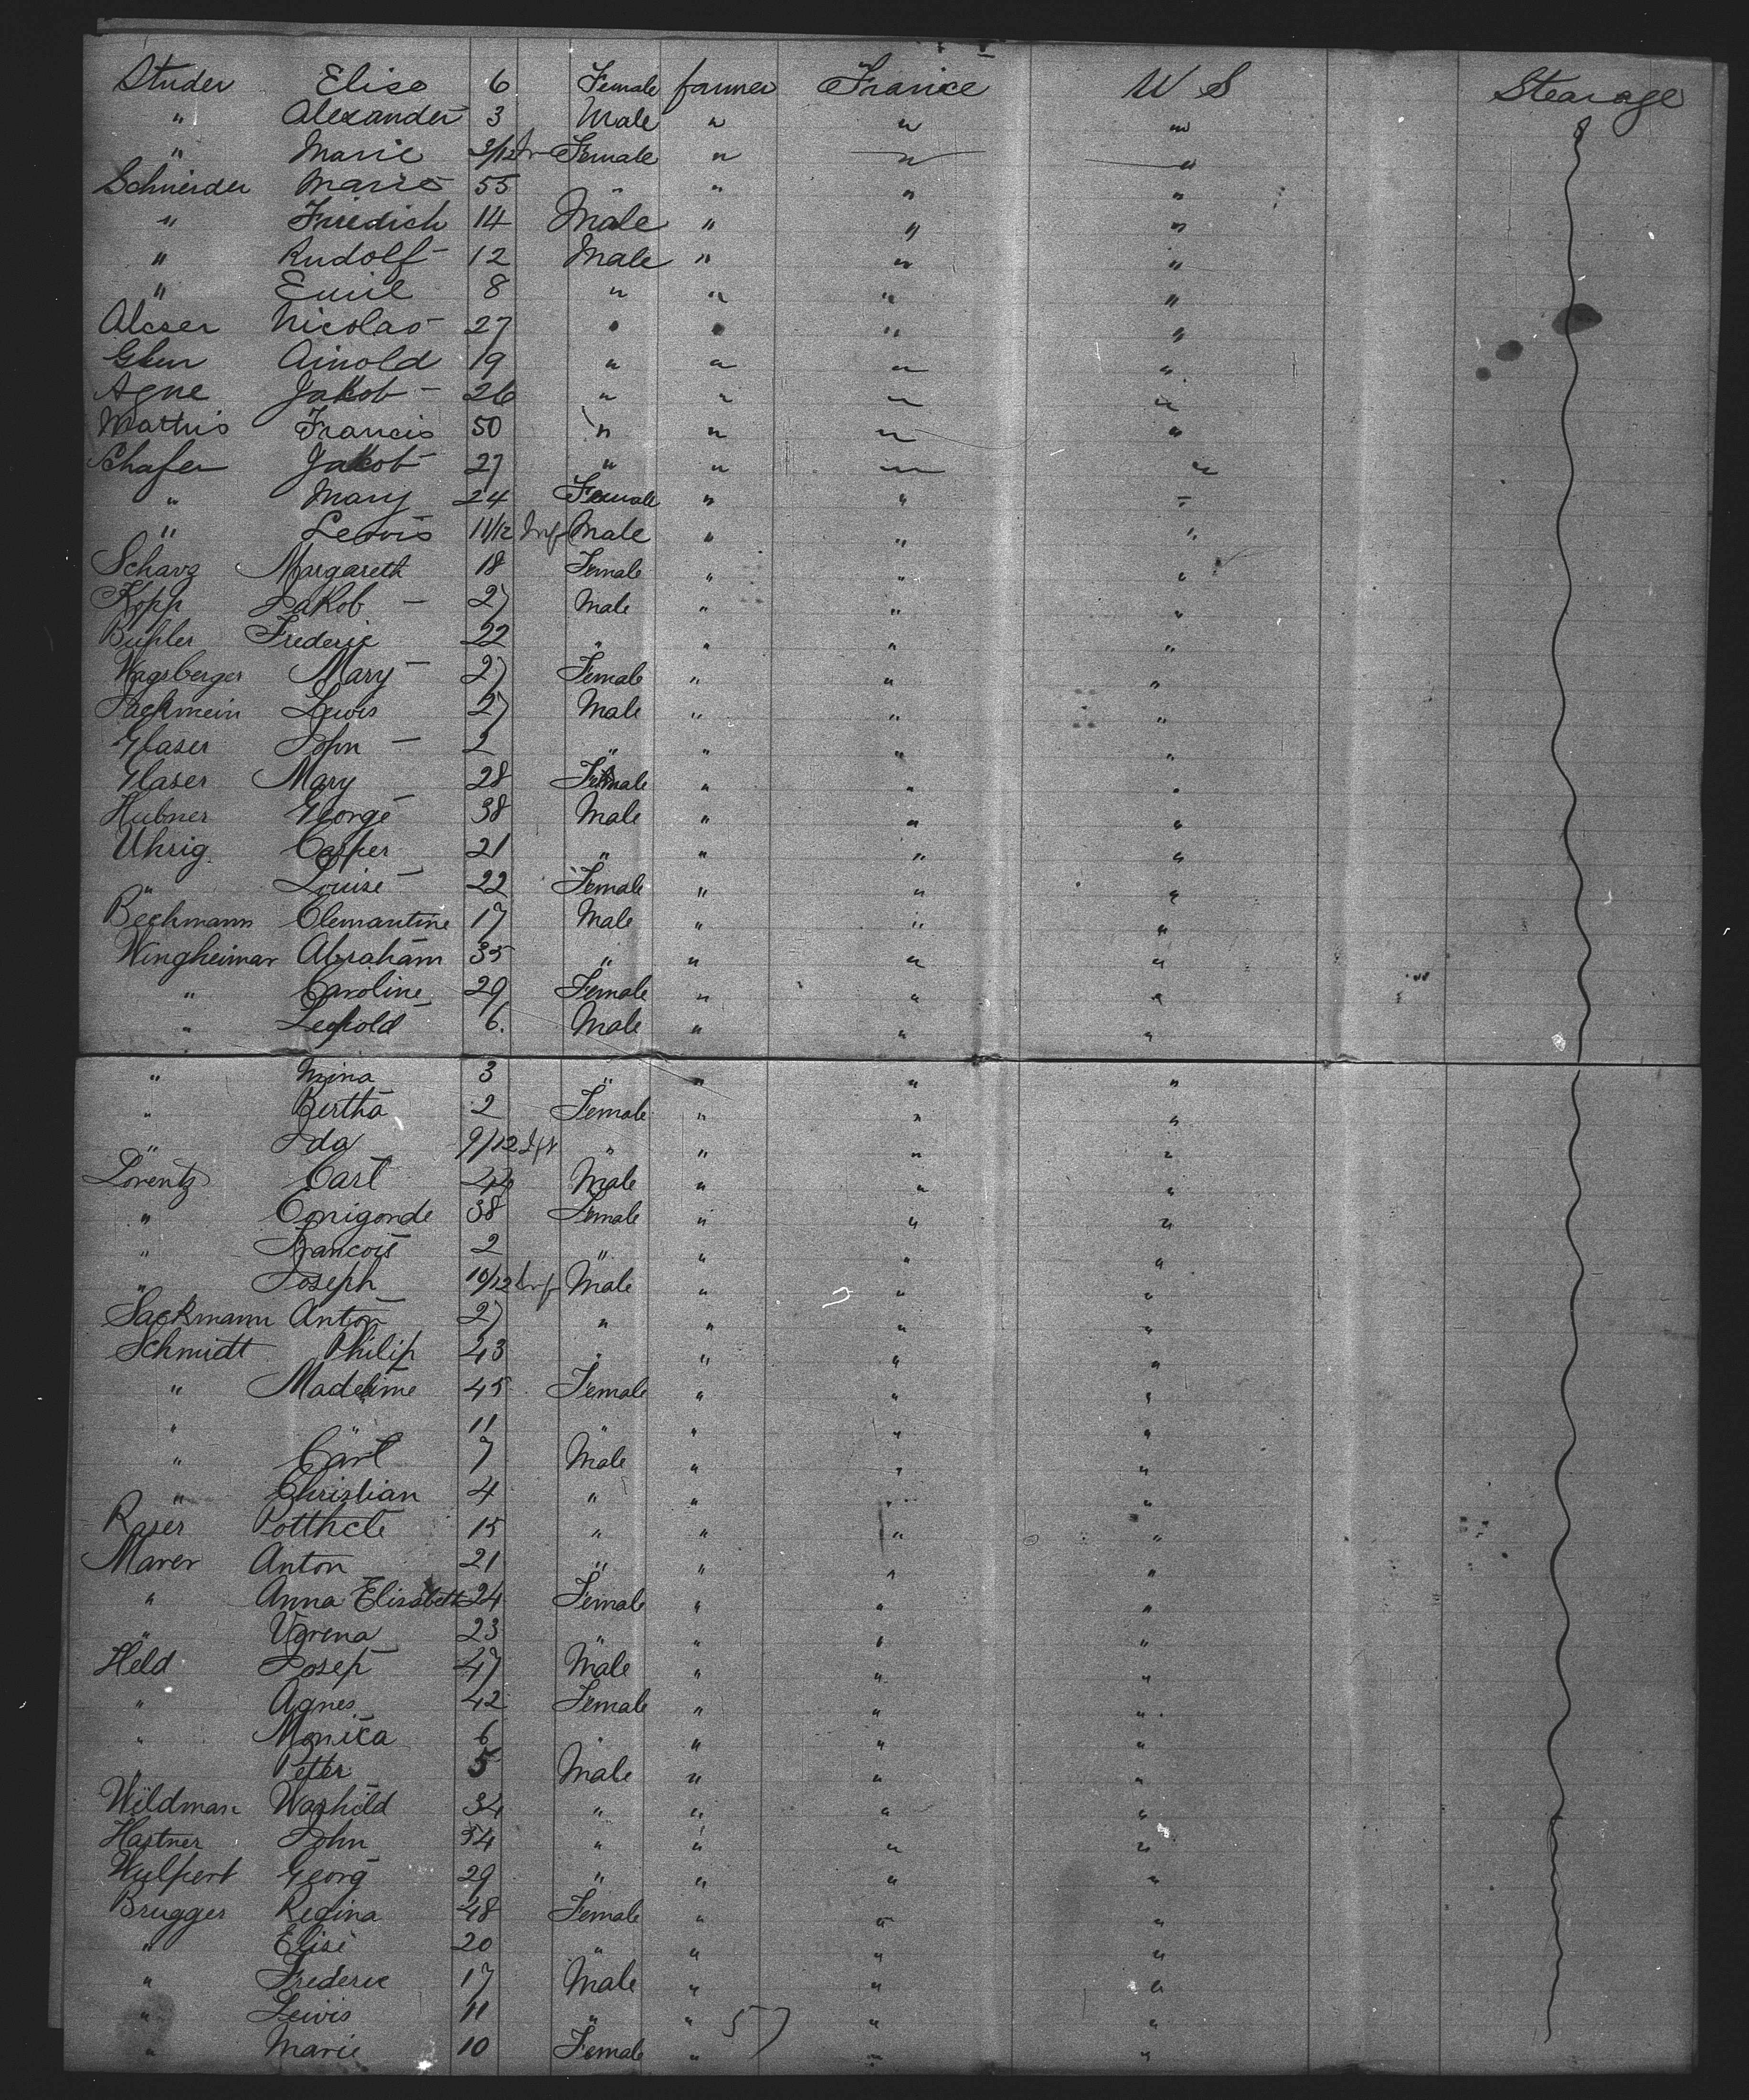 Studer Elise 6 Female farmer France U S Stearage
" Alexander 3 Male " " "
" Marie 3/12 Female " " "
Schneider Marie 55 " " " "
" Friedich 14 Male " " "
" Rudolf 12 Male " " "
" Emil 8 " " " "
Nicolas 27 " " " "
Arnold 19 " " " "
Agne Jakob 26 " " " "
Mathis Francis 50 " " " "
Schafer Jakob 27 " " " "
" Mary 24 Female " " "
" Lewis 11/12 Inf Male " " "
Margareth 18 Female " " "
Kopp Jakob 27 Male " " "
Buhler Frederic 22 " " " "
Mary 27 Female " " "
Lewis 27 Male " " "
Glaser John 2 " " " "
Glaser Mary 28 Female " " "
Hubner George 38 Male " " "
Uhrig Casper 21 " " " "
" Louise 22 Female " " "
Bechmann Clemantine 17 Male " " "
Wingheimar Abraham 35 " " " "
" Caroline 29 Female " " "
" Leopold 6. Male " " "
" Mina 3 " " " "
" Bertha 2 Female " " "
" Ida 9/12 " " " "
Lorentz Carl 44 Male " " "
" Conigonde 38 Female " " "
" Francois 2 " " " "
" Joseph 10/12 Inf Male " " "
Sackmann Anton 27 " " " "
Schmidt Philip 43 " " " "
" Madeleine 45 Female " " "
" 11 " " " "
" Carl 7 Male " " "
" Christian 4 " " " "
Raser 15 " " " "
Marer Anton 21 " " " "
" Anna Elisabeth 24 Female " " "
" Verena 23 " " " "
Held Josep 47 Male " " "
" Agnes 42 Female " " "
" Monica 6 " " " "
" Peter 5 Male " " "
Wildman 34 " " " "
Hartner John 54 " " " "
Wulpert Georg 29 " " " "
Brugger Regina 48 Female " " "
" Elise 20 " " " "
" Frederic 17 Male " " "
" Lewis 11 " " 57 " "
" Marie 10 Female " " "